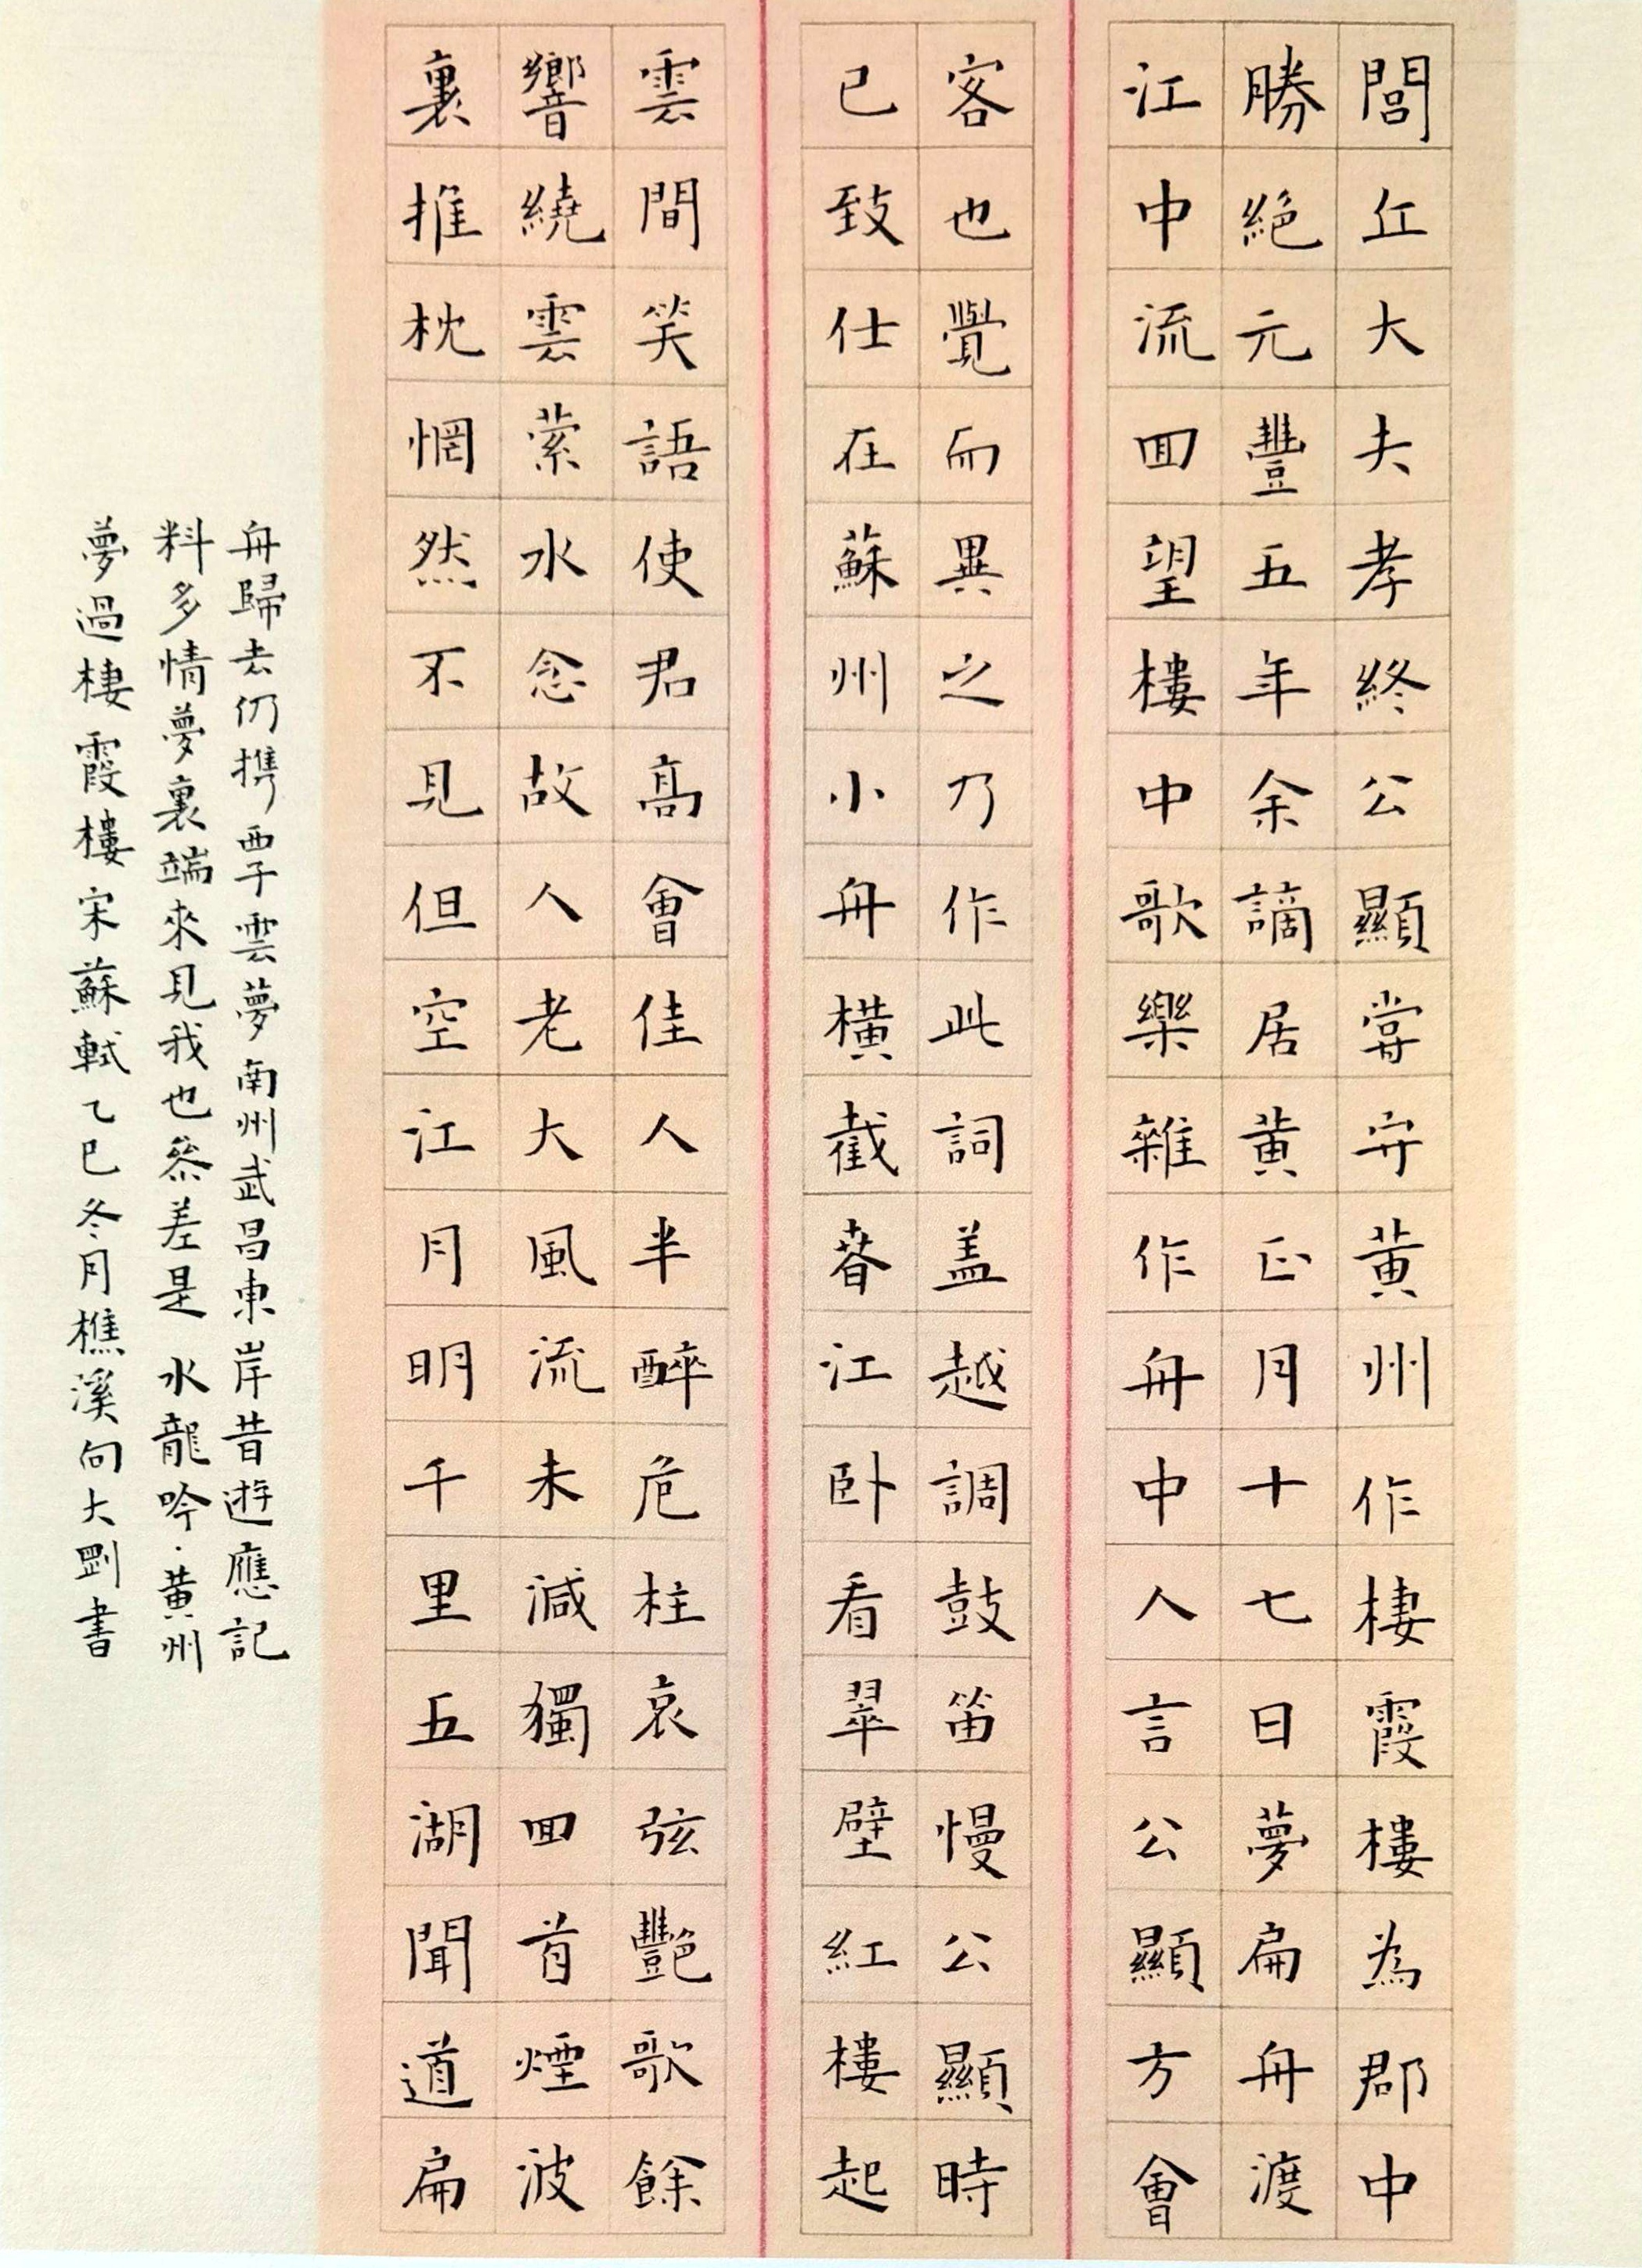 閭丘大夫孝終公顯嘗守黃州作棲霞樓為郡中
勝絕元豐五年余謫居黃正月十七日夢扁舟渡
江中流回望樓中歌樂雜作舟中人言公顯方會
客也覺而異之乃作此詞蓋越調鼓笛慢公顯時
已致仕在蘇州小舟橫截春江卧看翠壁紅樓起
雲間笑語使君高會佳人半醉危柱哀弦艷歌餘
響繞雲縈水念故人老大風流未減獨回首煙波
裏推枕惘然不見但空江月明千里五湖聞道扁
舟歸去仍攜西子雲夢南州武昌東岸昔遊應記
料多情夢裏端來見我也參差是 水龍吟·黃州
夢過棲霞樓宋蘇軾乙巳冬月樵溪句大剛書